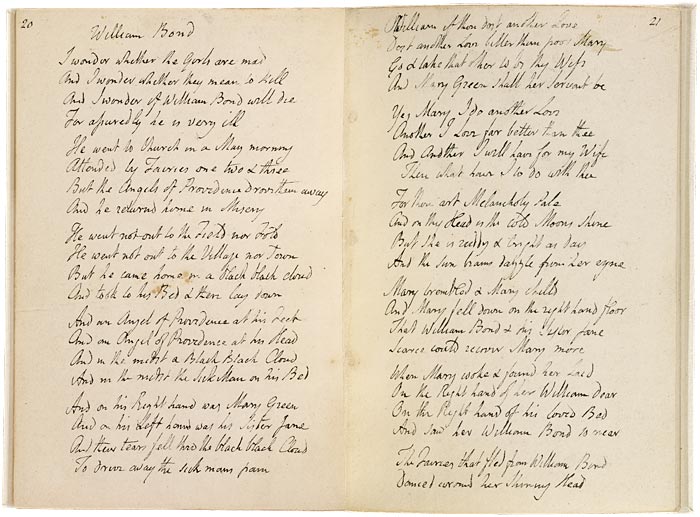 20
William Bond
I wonder whether the Girls are mad
And I wonder whether they mean to kill
And I wonder if William Bond will die
For assuredly he is very ill
He went to Church in a May morning
Attended by Fairies one two & three
But the Angels of Providence drove them away
And he returnd home in Misery
He went not out to the Field nor Fold
He went not out to the Village nor Town
But he came home in a black black cloud
And took to his Bed & there lay down
And an Angel of Providence at his Feet
And an Angel of Providence at his Head
And in the midst a Black Black Cloud
And in the midst the Sick Man on his Bed
And on his Right hand was Mary Green
And on his Left hand was his Sister Jane
And their tears fell thro the black black Cloud
To drive away the sick mans pain
21
William if thou dost another Love
Dost another Love better than poor Mary
Go & take that other to be thy Wife
And Mary Green shall her Servant be
Yes Mary I do another Love
Another I Love far better than thee
And Another I will have for my Wife
Then what have I to do with thee
For thou art Melancholy Pale
And on thy Head is the cold Moons shine
But she is ruddy & bright as day
And the sun beams dazzle from her eyne
Mary trembled & Mary chilld
And Mary fell down on the right hand floor
That William Bond & his Sister Jane
Scarce could recover Mary more
When Mary woke & found her Laid
On the Right hand of her William Dear
On the Right hand of his Loved Bed
And saw her William Bond so near
The Fairies that fled from William Bond
Danced around her Shining Head